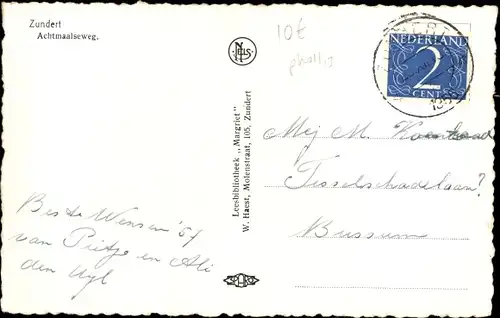 Zundert
Achtmaalseweg.
10€
NELS
NEDERLAND
2
CENT
Leesbibliotheek „Margriet"
W. Haest, Molenstraat, 105, Zundert
Mej M.
Tesselschadelaan?
Bussum
Beste Wensen '54
van Pietje en Ali
den Uyl